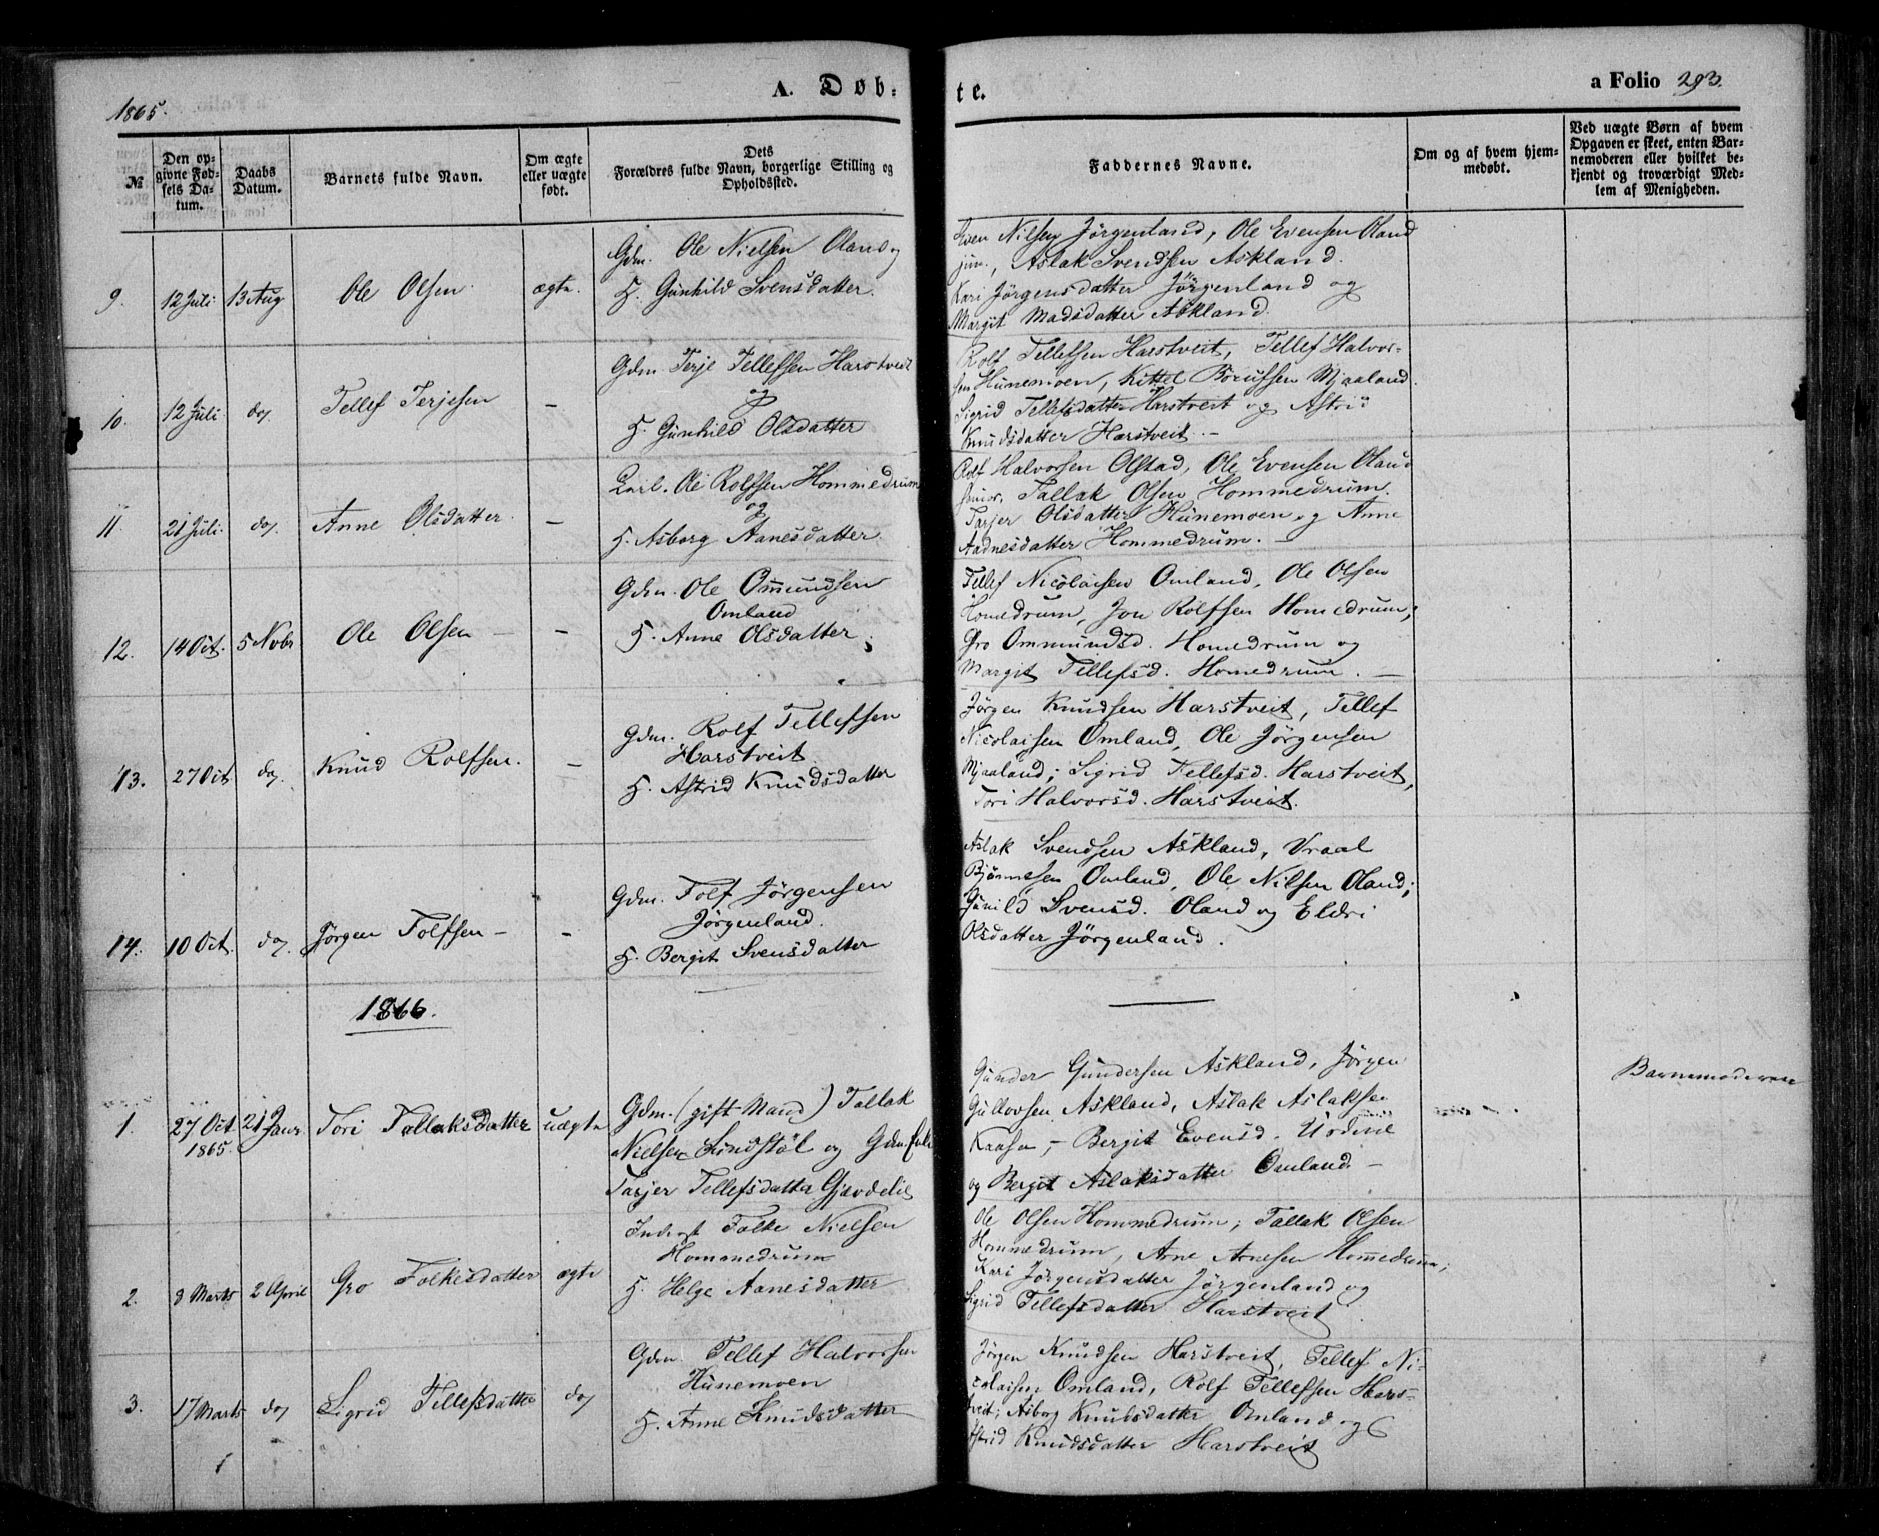 1865.
A. Døb-
te.
a Folio 293.
№
Den op-
givne Fød-
sels Da-
tum.
Daabs
Datum.
Barnets fulde Navn.
Om ægte
eller uægte
født.
Dets
Forældres fulde Navn, borgerlige Stilling og
Opholdssted.
Faddernes Navne.
Om og af hvem hjem-
medøbt.
Ved uægte Børn af hvem
Opgaven er skeet, enten Bar-
nemoderen eller hvilket be-
kjendt og troværdigt Med-
lem af Menigheden.
9. 12 Juli 13 Aug Ole Olsen ægte.
Gdm. Ole Nielsen Oland og
H. Gunhild Svensdatter.
Even Nilsen Jörgenland, Ole Evensen Oland
jun., Aslak Svendsen Askland.
Kari Jörgensdatter Jörgenland og
Margit Madsdatter Askland.
10. 12 Juli do, Tellef Terjesen —
Gdm Terje Tellefsen Harstveit
og
H. Gunhild Olsdatter
Rolf Tellefsen Harstveit, Tellef Halvor-
sen Hunemoen, Kittel Mjaaland.
Sigrid Tellefsdatter Harstveit og Astrid
Knudsdatter Harstveit. —
11. 21 Juli do, Anne Olsdatter. —
Ole Rolfsen Hommedrum
og
H. Asborg Aanesdatter.
Rolf Halvorsen Olstad, Ole Evensen Oland
senior, Tallak Olsen Hommedrum.
Tarjer Olsdatter Hunemoen og Anne
Aadnesdatter Hommedrum. —
12. 14 Oct. 5 Novbr Ole Olsen — —
Gdm. Ole Omundsen
Omland
H. Anne Olsdatter.
Tellef Nicolaisen Omland, Ole Olsen
Homedrum, Jon Rolfsen Homedrum;
Gro Ommundsd. Homedrum og
Margit Tellefsd. Homedrum. —
13. 27 Oct do, Knud Rolfsen. —
Gdm. Rolf Tellefsen
Harstveit.
H. Astrid Knudsdatter
Jørgen Knudsen Harstveit, Tellef
Nicolaisen Omland, Ole Jørgensen
Mjaaland; Sigrid Tellefsd. Harstveit,
Tori Halvorsd. Harstveit.
14. 10 Oct. do, Jörgen Folfsen — —
Gdm. Folf Jörgensen
Jörgenland.
H. Bergit Svensdatter
Aslak Svendsen Askland, Vraal
Bjönnesen Omland, Ole Nilsen Oland;
Gunild Svensd. Oland og Eldri
Olsdatter Jörgenland.
1866.
1. 27 Oct. 21 Janr. Tori Tallaksdatter uægte
1865.
Gdm. (gift Mand) Tallak
Nielsen Lindstöl og
Tarjer Tellefsdatter Gjevdelie
Gunder Gundersen Askland, Jörgen
Gullovsen Askland, Aslak Aslaksen
Kaasen, — Bergit Evensd.
og Bergit Aslaksdatter Omland —
Barnemoderen
2. 8 Marts 2 April Gro Folkesdatter ægte
Inderst Folke Nielsen
Hommedrum
H. Helge Aanesdatter
Ole Olsen Hommedrum; Tallak Olsen
Hommedrum, Arne Arnesen Homedrum;
Kari Jörgensdatter Jörgenland og
Sigrid Tellefsdatter Harstveit
3. 17 Marts do, Sigrid Tellefsdatter do,
Gdm. Tellef Halvorsen
Hunemoen
H. Anne Knudsdatter
Jörgen Knudsen Harstveit, Tellef Ni-
colaisen Omland, Rolf Tellefsen Harst-
veit; Asborg Knudsdatter Omland og
Astrid Knudsdatter Harstveit